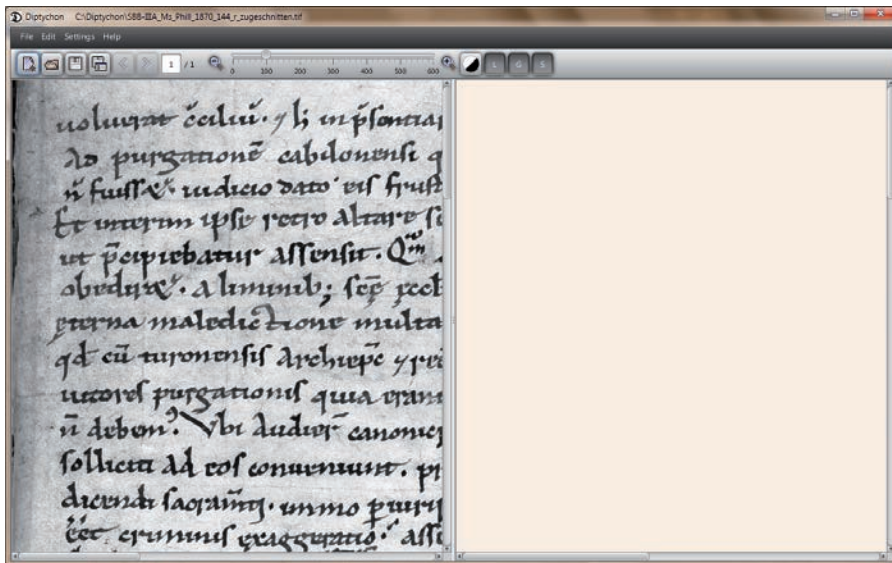 Diptychon C:\Diptychon\SBB-IIIA_Ms_Phill_1870_144_r_zugeschnitten.tif
File Edit Settings Help
1 /1 0 100 200 300 400 500 600 L G S
uoluerat
Ad purgationē cabilonenſi q
n̄ iudicio dato eiſ fruſt
Et interim ipſe retro altare ſe
ut p̄cipiebatur aſſenſit. Qm̄
A liminib; ſcę̄ eccl
ęterna maledictione multa
qd cū turonenſiſ Archiepc̄ ⁊ re
purgationiſ quia erant
n̄ debemꝰ. Vbi audier̄ canonic
ſolliciti ad eoſ conueniunt. p
dicendi ſacram̄ti. immo
criminiſ exaggeratio. aſſ